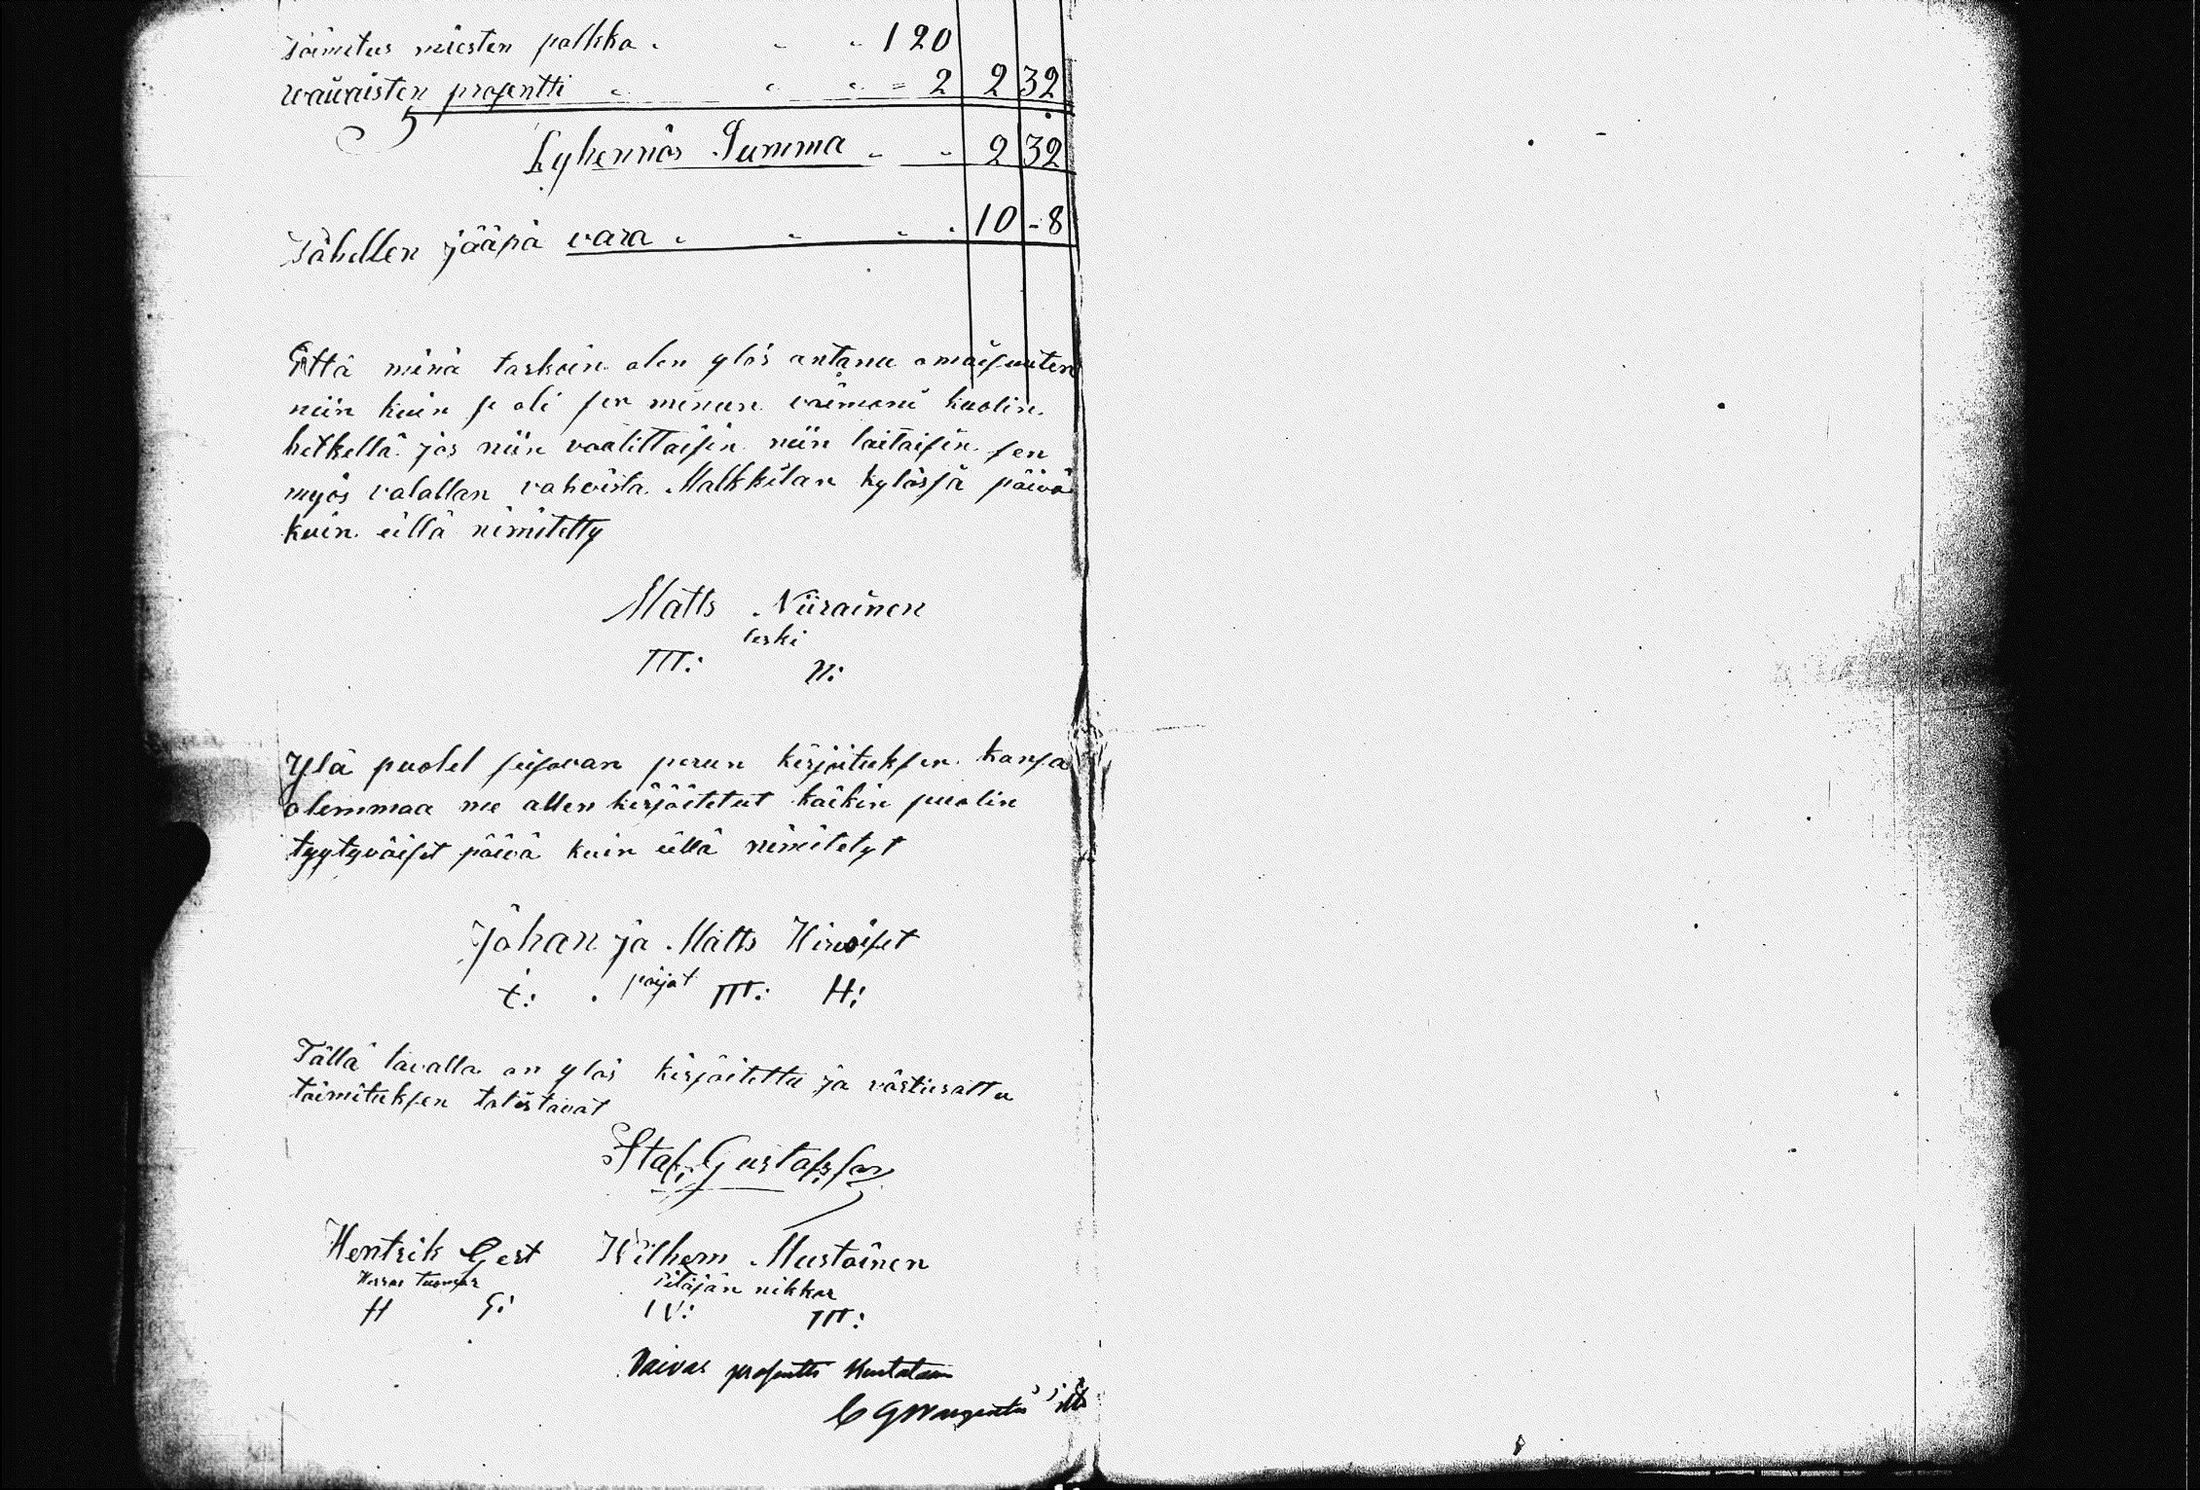 Toimitus miesten palkka . . . 1 20
waiwaisten prosentti . . . = 2 2 32
Lyhennös Summa . . 2 32
Tähellen jääpä vara . . . . 10 - 8
Että minä taskoin olen ylös antanu omaisuuten
niin kuin se oli sen minun vaimoni kuolin
hetkellä jos niin vaalittaisin niin laitaisin sen
myös valallan vahvista Malkkilan kylässä päivä
kuin eillä nimitetty
Matts Niirainen
leski
M: N:
Ylä puolel seisovan perun kirjoituksen kansa
olemmaa me allen kirjoitetut kaikin puolin
tyytyväiset päivä kuin üllä nimitetyt
Johan ja Matts Hirvoiset
t: pojat M: H:
Tällä tavalla on ylös kirjoitettu ja västierattu
toimituksen totistavat
Staf: Gustafsson
Hentrik Gest Wilhem Mustoinen
Herras tuomar pitäjän nikkar
H G: W: M:
Vaivas prosentti